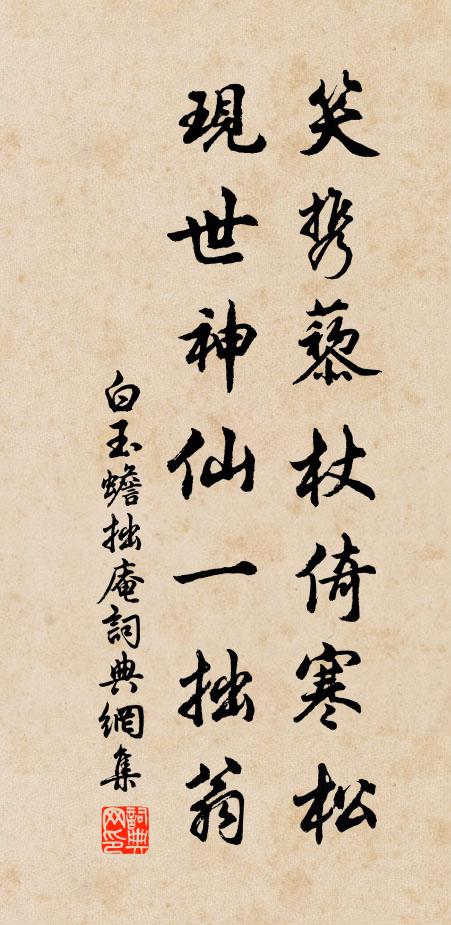 笑携藜杖倚寒松
現世神仙一拙翁
白玉蟾拙庵詞典網集
詞典網印